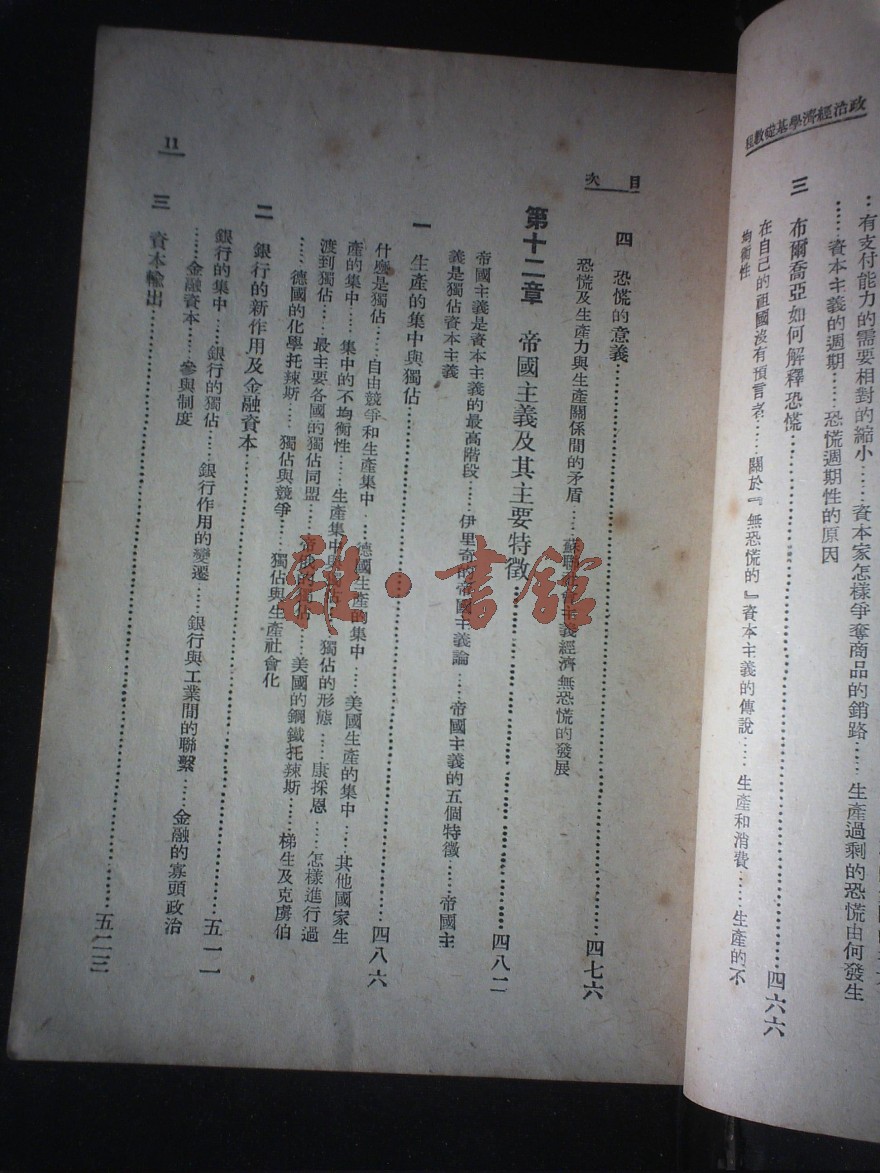 政治經濟學基礎教程
…有支付能力的需要相對的縮小……資本家怎樣爭奪商品的銷路……生產過剩的恐慌由何發生
……資本主義的週期……恐慌週期性的原因
三 布爾喬亞如何解釋恐慌……四六六
在自己的祖國沒有預言者……關於『無恐慌的』資本主義的傳說……生產和消費……生產的不
均衡性
目次
四 恐慌的意義……四七六
恐慌及生產力與生產關係間的矛盾……蘇聯社會主義經濟無恐慌的發展
第十二章 帝國主義及其主要特徵……四八二
帝國主義是資本主義的最高階段……伊里奇的帝國主義論……帝國主義的五個特徵……帝國主
義是獨佔資本主義
一 生產的集中與獨佔……四八六
什麼是獨佔……自由競爭和生產集中……德國生產的集中……美國生產的集中……其他國家生
產的集中……集中的不均衡性……生產集中與獨佔……獨佔的形態……康採恩……怎樣進行過
渡到獨佔……最主要各國的獨佔同盟……帝俄的獨佔……美國的鋼鐵托辣斯……梯生及克虜伯
……德國的化學托辣斯……獨佔與競爭……獨佔與生產社會化
二 銀行的新作用及金融資本……五一一
銀行的集中……銀行的獨佔……銀行作用的變遷……銀行與工業間的聯繫……金融的寡頭政治
……金融資本……參與制度
三 資本輸出……五二三
11
雜·書館